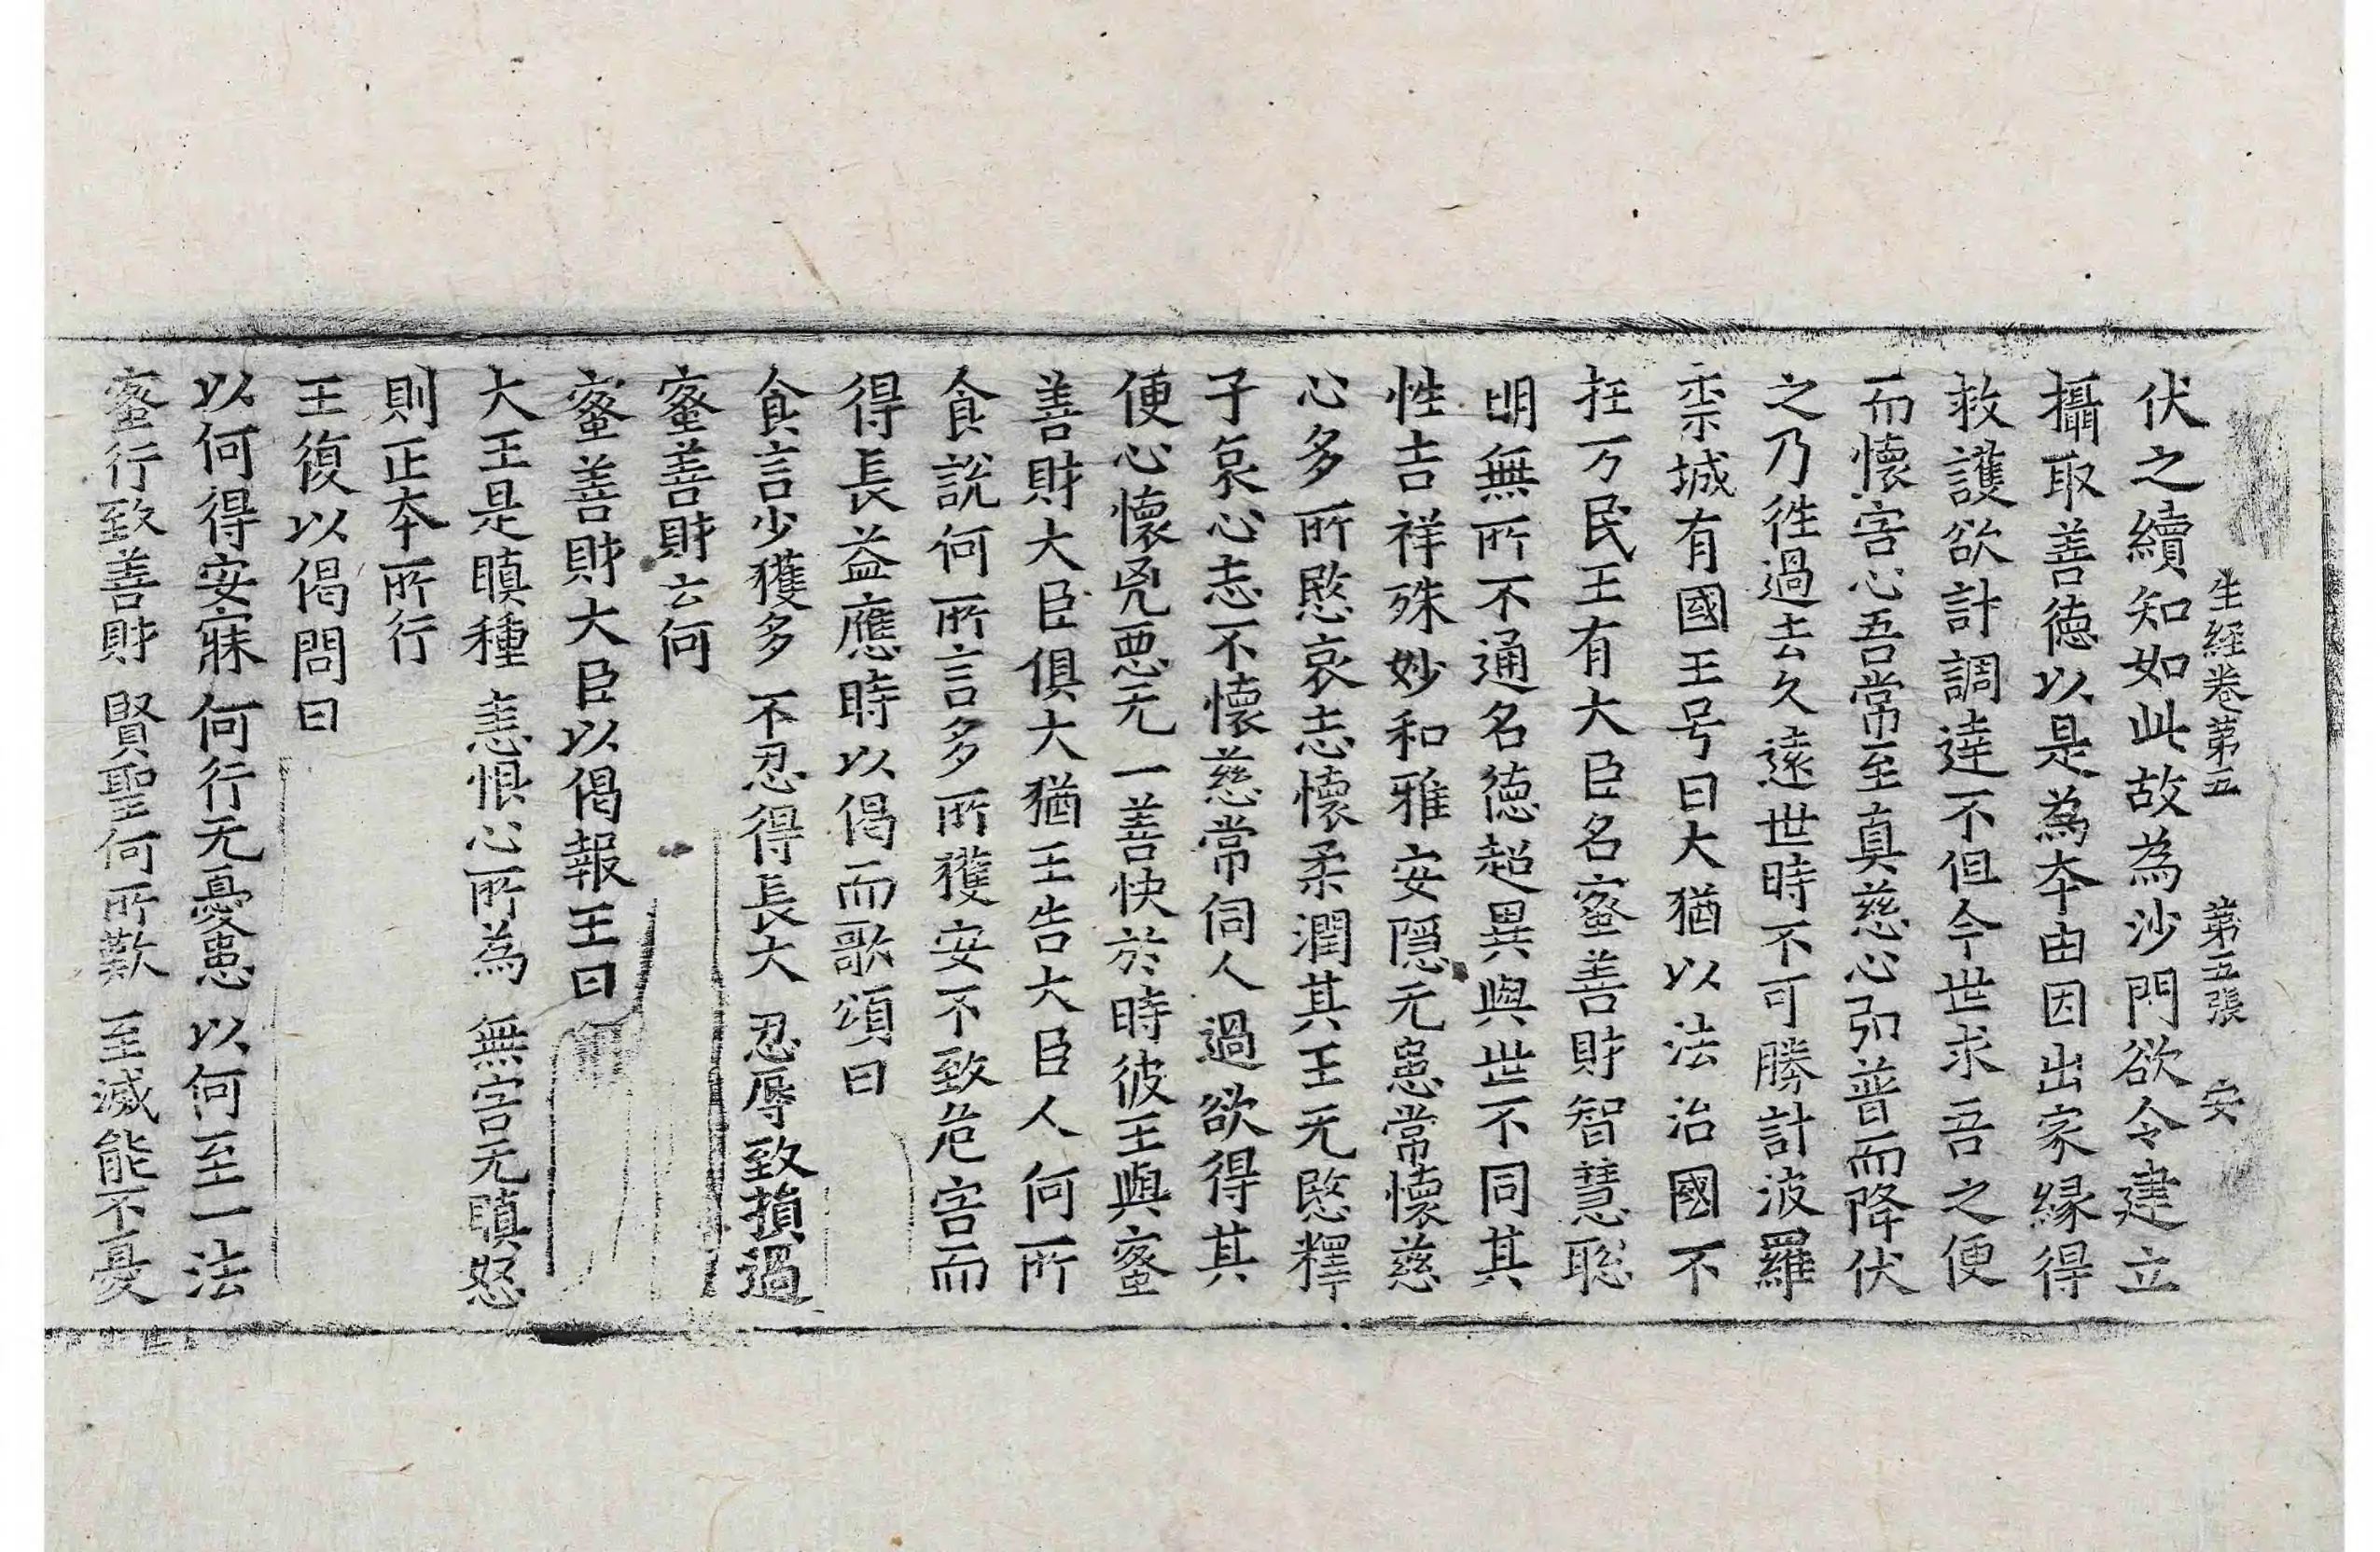 生経卷第五 第五張 安
伏之續知如此故為沙門欲令建立
攝取善徳以是為夲由因出家縁得
救護欲計調達不但今世求吾之便
而懷害心吾常至真慈心弘普而降伏
之乃徃過去久遠世時不可勝計波羅
柰城有國王号曰大猶以法治國不
抂万民王有大臣名蜜善財智慧聡
明無所不通名徳超異與世不同其
性吉祥殊妙和雅安隠无患常懷慈
心多所愍哀志懷柔潤其王无愍釋
子哀心志不懷慈常伺人過欲得其
便心懷兇惡无一善快於時彼王與蜜
善財大臣俱大猶王告大臣人何所
食說何所言多所獲安不致危害而
得長益應時以偈而歌頌曰
食言少獲多 不忍得長大 忍辱致損過
蜜善財云何
蜜善財大臣以偈報王曰
大王是瞋種 恚恨心所為 無害无瞋怒
則正夲所行
王復以偈問曰
以何得安寐 何行无憂患 以何至一法
蜜行致善財 賢聖何所歎 至滅能不憂